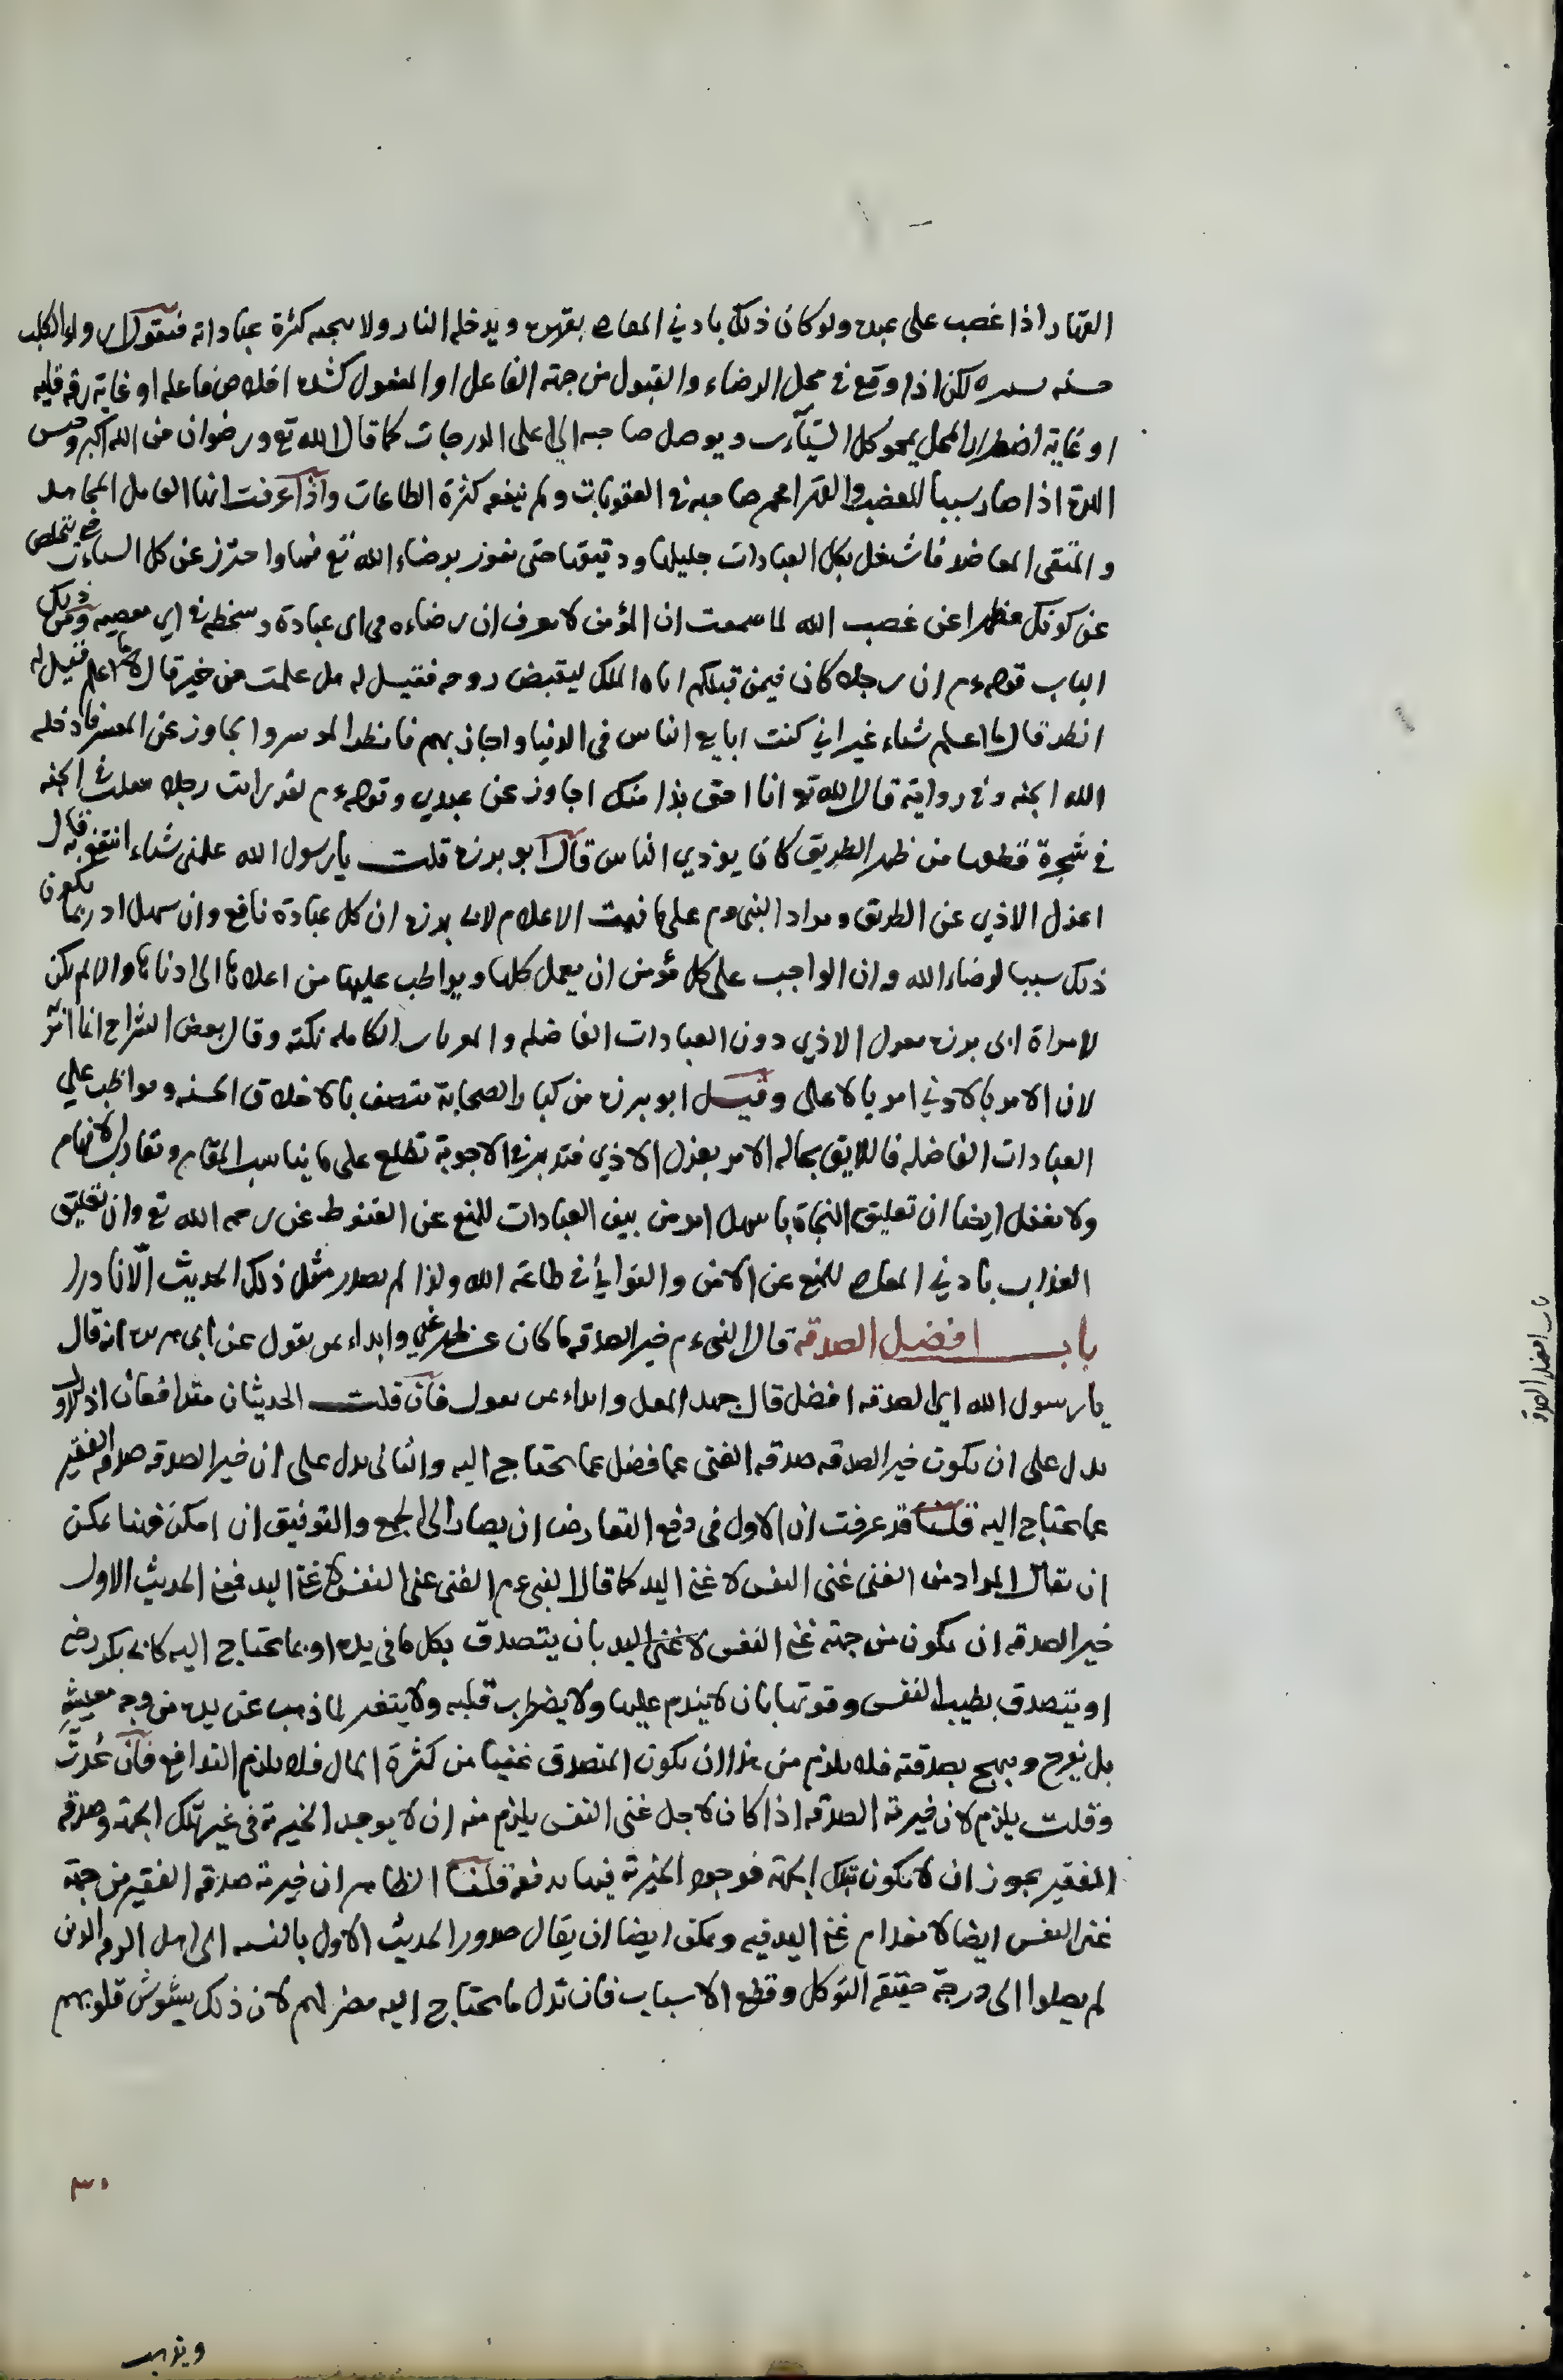 القهار اذا غضب على عبده ولو كان ذلك بادني المعاصي بقهره ويدخله النار ولا ينجيه كثرة عباداته فنقول ارواء الكلب
حسنه يسيره لكن اذا وقع في محل الرضاء والقبول من جهة الفاعل او المفعول كشدة اخلاص فاعله او غاية رقة قلبه
او غاية اضطرار المحل يمحو كل السيّآت ويوصل صاحبه الي اعلى الدرجات كما قال الله تع ورضوان من الله اكبر وحبس
الهرة اذا صار سببا للغضب والقهر صاحبه في العقوبات ولم ينفع كثرة الطاعات واذا عرفت ايها العامل المجاهد
والمتقى فاشتغل بكل العبادات جليلها ودقيقها حتى تفوز برضاء الله تع فيها واحترز عن كل السيئات حتى تخلص
عن كونك مظهرا عن غضب الله لما سمعت ان المؤمن لا يعرف ان رضاءه في اى عبادة وسخطه في اي معصيه ومن ذلك
الباب قوله عم ان رجلا كان فيمن قبلكم اتاه الملك ليقبض روحه فقيل له هل علمت من خير قال ما اعلم فقيل له
انظر قال ما اعلم شيئا غير اني كنت ابايع الناس في الدنيا واجازيهم فانظر الموسر واتجاوز عن المعسر فادخله
الله الجنه وفي رواية قال الله تع انا احق بذا منك تجاوز عن عبدي وقوله عم لقد رايت رجلا يتقلب في الجنه
في شجرة قطعها من ظهر الطريق كانت يؤذي الناس قال ابو برزه قلت يا رسول الله علمني شيئا انتفع به قال
اعزل الاذي عن الطريق ومراد النبي عم على ما فهمت الاعلام لابي برزه ان كل عبادة نافع وان سهل اذ ربما يكون
ذلك سببا لرضاء الله وان الواجب على كل مؤمن ان يعمل كلها ويواظب عليها من اعلاها الى ادناها والا لم يكن
لامره ابى برزه بعزل الاذي دون العبادات الفاضله والقربات الكامله نكته وقال بعض الشراح انما
لان الامر بالادني امر بالاعلى وقيل ابو برزه من كبار الصحابة متصف بالاخلاق الحسنه ومواظب على
العبادات الفاضله فاللايق بحاله الامر بعزل الاذي فتدبر في الاجوبة تطلع على ما يناسب المقام وتقارب الافهام
ولا تغفل ايضا ان تعليق النجاة باسهل امر من بين العبادات للمنع عن القنوط عن رحمة الله تع وان تعليق
العذاب بادني المعاصي للمنع عن الامن والتواني في طاعة الله ولذا لم يصدر مثل ذلك الحديث الّا نادرا
باب افضل الصدقه قال النبي عم خير الصدقه ما كان عن ظهر غني وابداء بمن تقول عن ابى هريره انه قال
يا رسول الله اي الصدقه افضل قال جهد المقل وابداء بمن تعول فان قلت الحديثان متدافعان اذ الاول
يدل على ان يكون خير الصدقه صدقه الغني عما فضل عما يحتاج اليه والثاني يدل على ان خير الصدقه صدقه الفقير
عما يحتاج اليه قلنا قد عرفت ان الاول في دفع التعارض ان يصار الى الجمع والتوفيق ان امكن فههنا يمكن
ان يقال المراد من الغنى غنى النفس لا غني اليد كما قال النبي عم الغنى غنى النفس لا غني اليد فمعنى الحديث الاول
خير الصدقه ان يكون من جهة غني النفس لا غنى اليد بان يتصدق بكل ما في يده او بما يحتاج اليه كابي بكر رضى
او يتصدق بطيب النفس وقوتها بان لا يندم عليها ولا يضطرب قلبه ولا يتغير لما ذهب عن يده من وجه معيشته
بل يفرح ويبهج بصدقته فلا يلزم من هذا ان يكون المتصدق غنيا من كثرة المال فلا يلزم التدافع فان عُدتّ
وقلت يلزم لان خيرية الصدقه اذا كان لاجل غنى النفس يلزم منه ان لا يوجد الخيرية في غير تلك الجهة وصدقه
الفقير يجوز ان لا يكون تلك الجهة فوجود الخيرية فيها يدفعه قلنا الظاهر ان خيرية صدقه الفقير من جهة
غنى النفس ايضا لانعدام غني اليد فيه ويمكن ايضا ان يقال صدور الحديث الاول بالنسبه الى اهل الذين
لم يصلوا الى درجة حقيقة التوكل وقطع الاسباب فان بذل ما يحتاج اليه مضر لهم لان ذلك يشوش قلوبهم
باب افضل الصدقه
٣٠
ويذهب